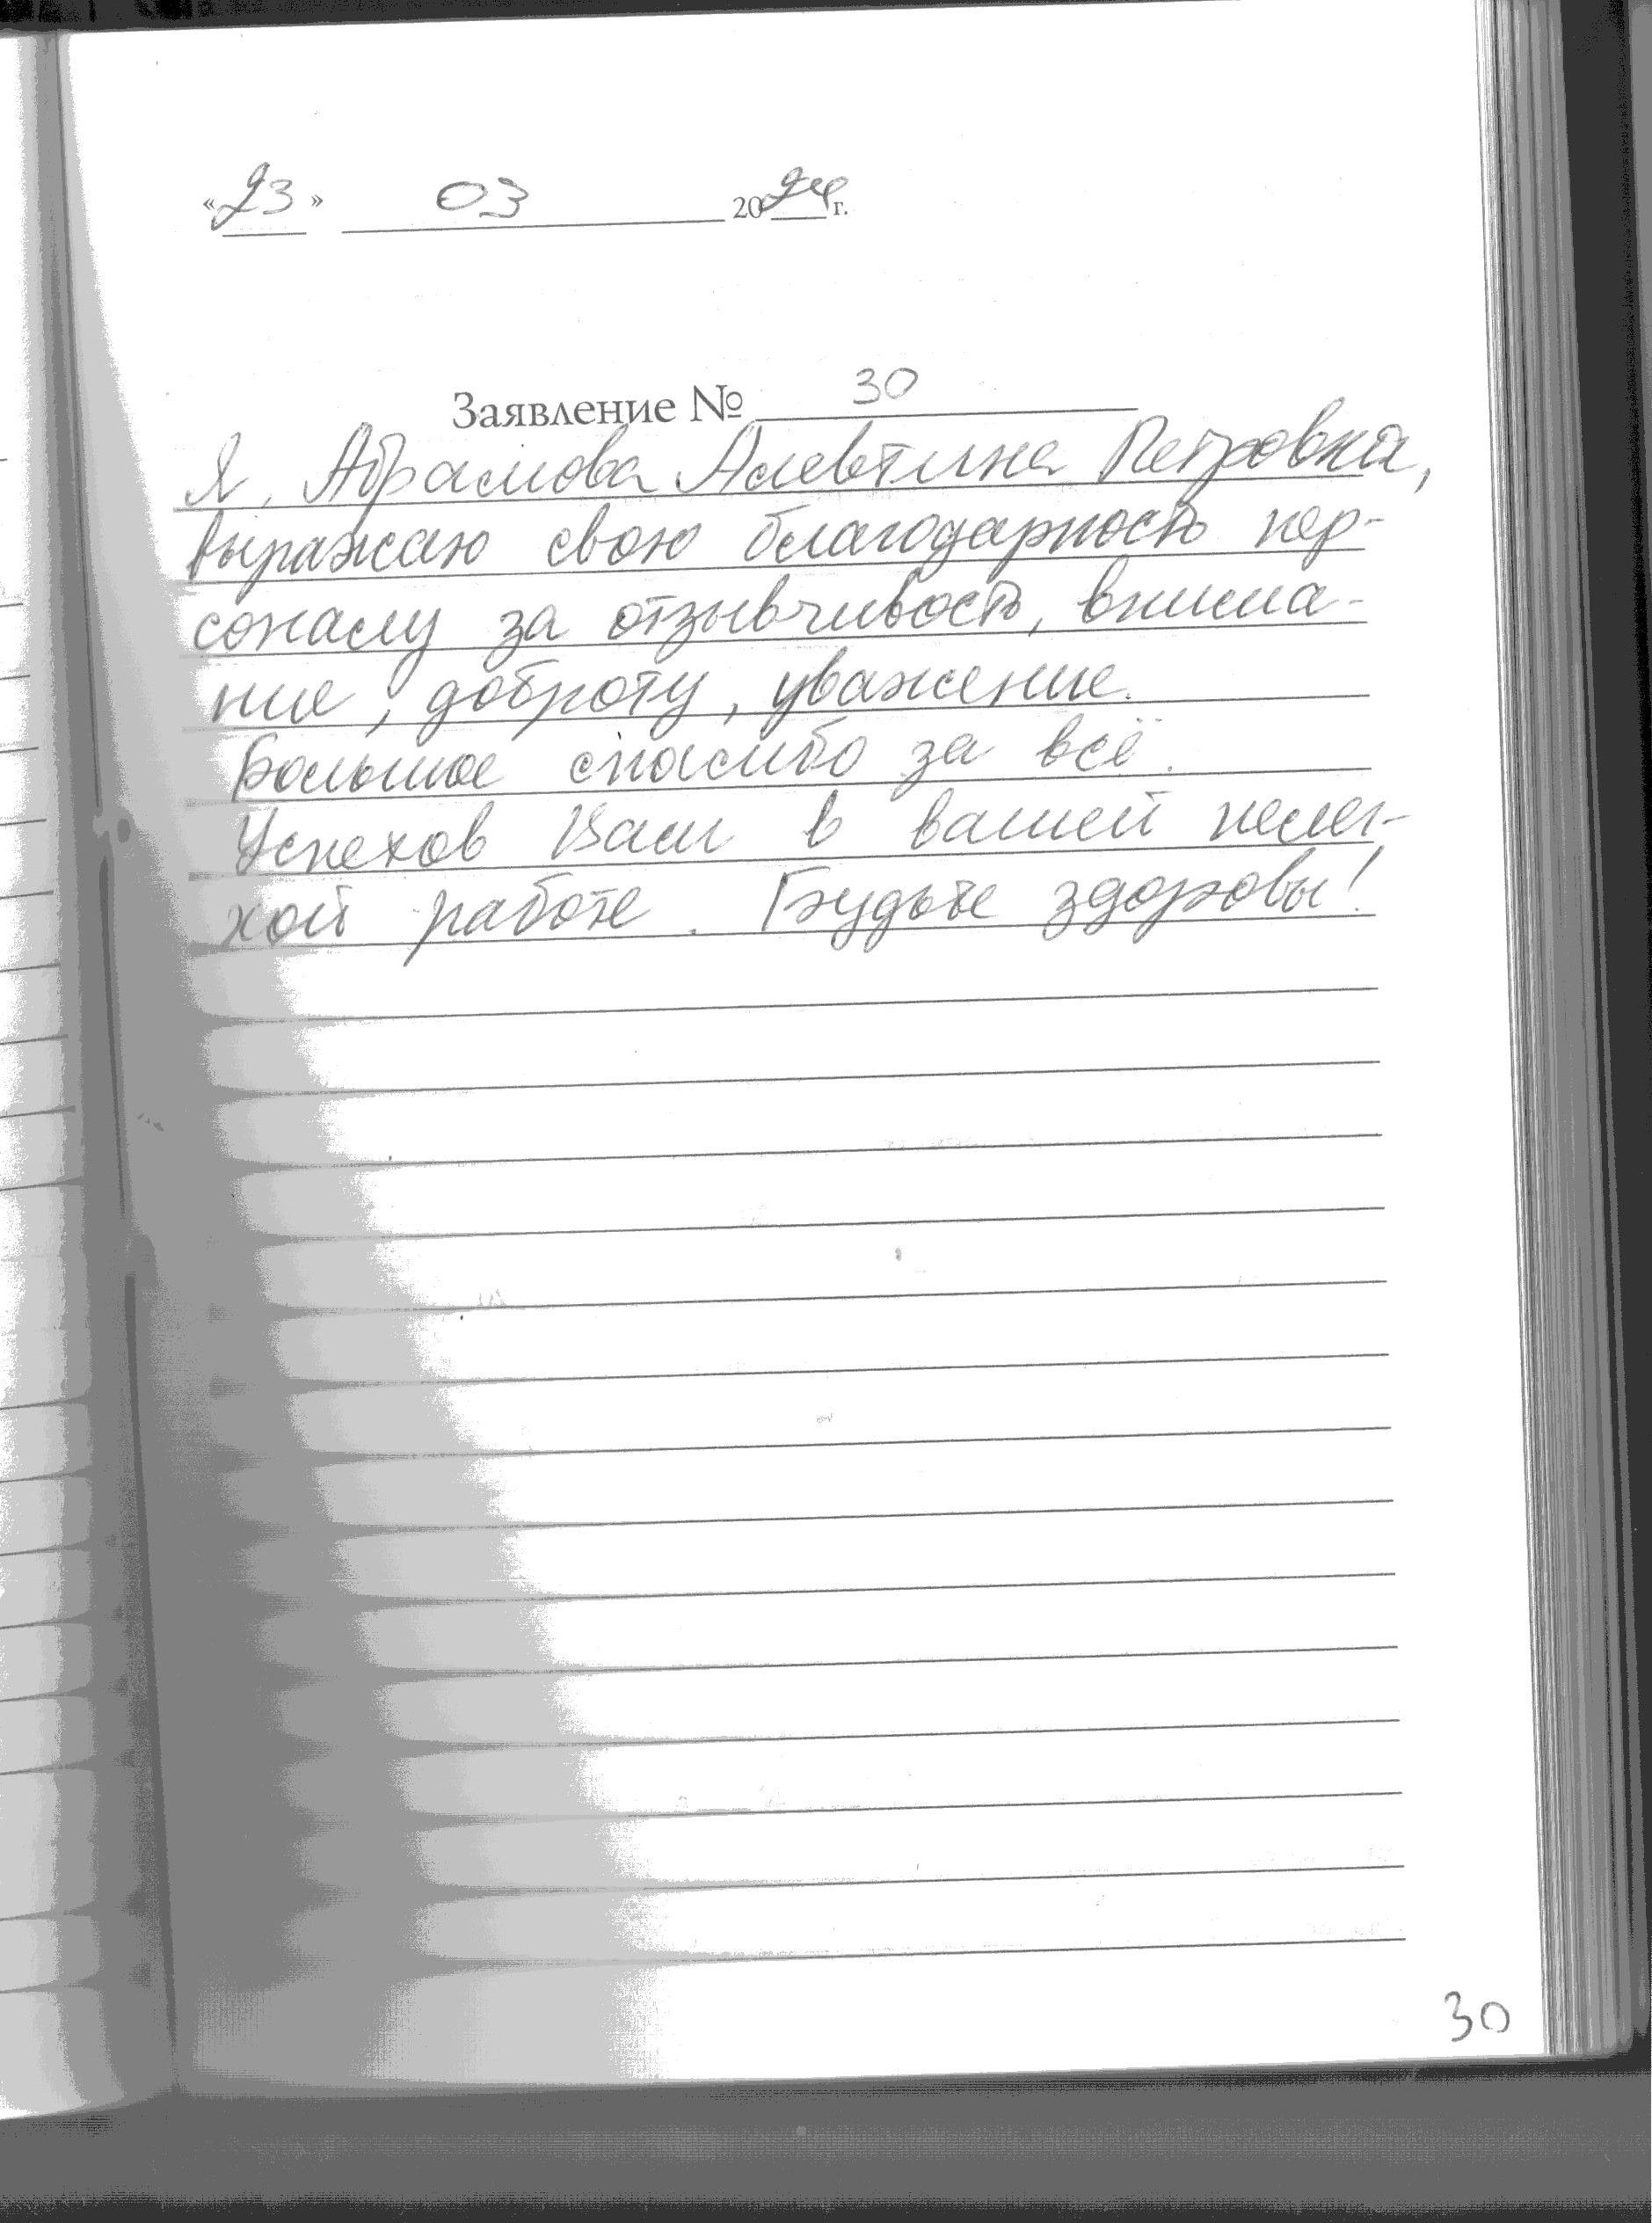 «23» 03 2024 г.
Заявление № 30
Я, Абрамова Алевтина Петровна,
выражаю свою благодарность пер-
соналу за отзывчивость, внима-
ние, доброту, уважение.
Большое спасибо за всё.
Успехов Вам в вашей нелег-
кой работе. Будьте здоровы!
30